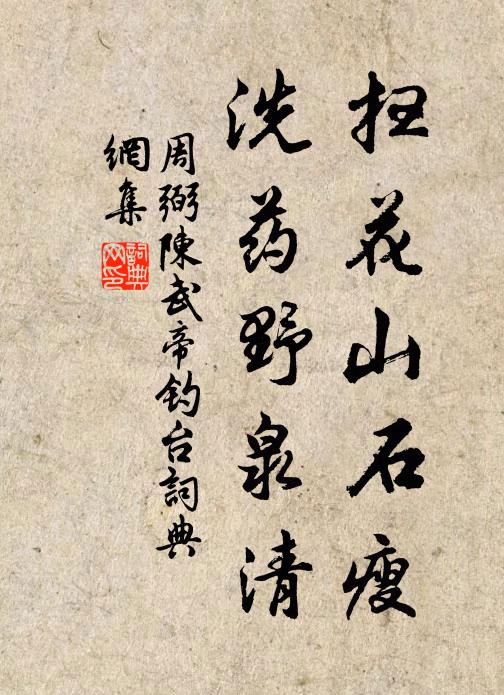 扫花山石瘦
洗药野泉清
周弼陳武帝钓台詞典
網集
詞典
网印